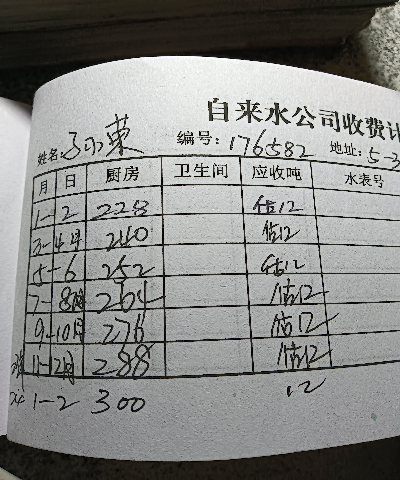 自来水公司收费计
姓名: 编号: 176582 地址: 5-3
月 日 厨房 卫生间 应收吨 水表号
1-2 228 估12
3-4月 240 估12
5-6 252 估12
7-8月 264 估12
9-10月 276 估12
11-12月 288 估12
1-2 300 12